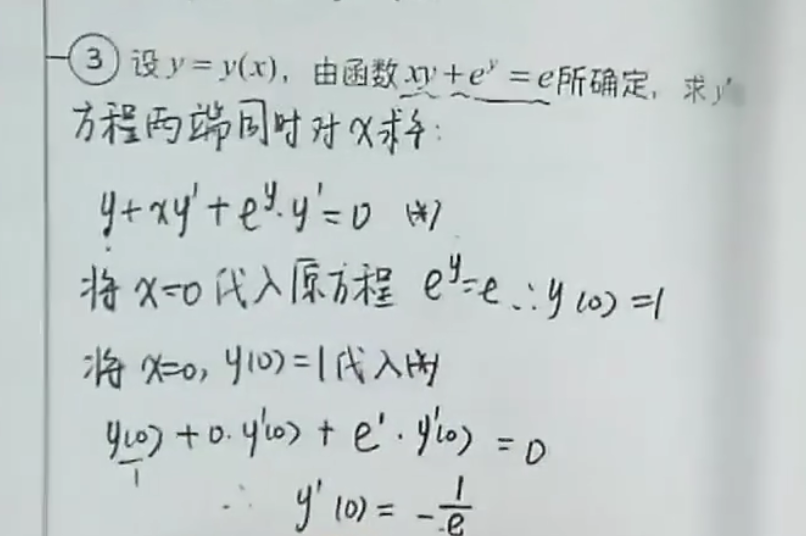 ③ 设 y = y(x), 由函数 xy + e^y = e 所确定, 求 y'
方程两端同时对 x 求导:
y + xy' + e^y · y' = 0 (*)
将 x=0 代入原方程 e^y = e ∴ y(0) = 1
将 x=0, y(0)=1 代入(*)
y(0) + 0·y'(0) + e^1 · y'(0) = 0
1
∴ y'(0) = -1/e